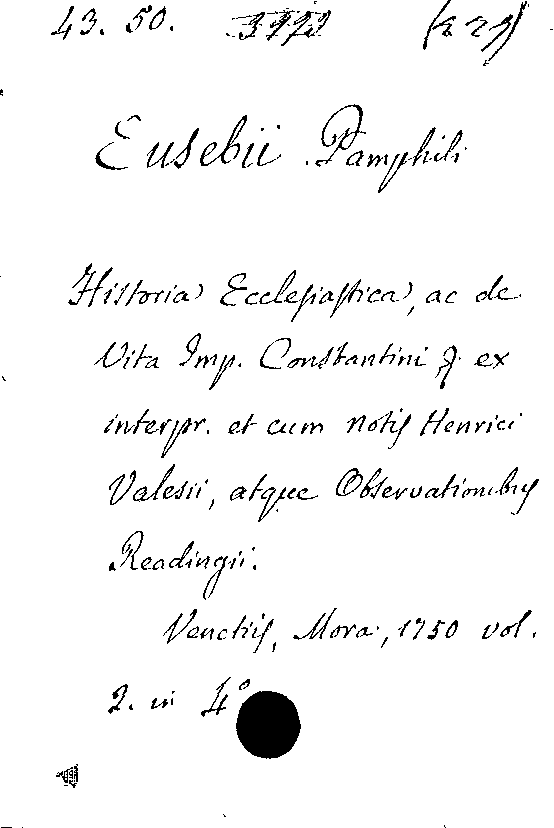 43. 50. (229)
Eusebii Pamphili
Historia Ecclesiastica, ac de
Vita Imp. Constantini, ex
interpr. et cum notis Henrici
Valesii, atque Observationibus
Readingii.
Venetiis, Mora, 1750 vol.
2. in 4°